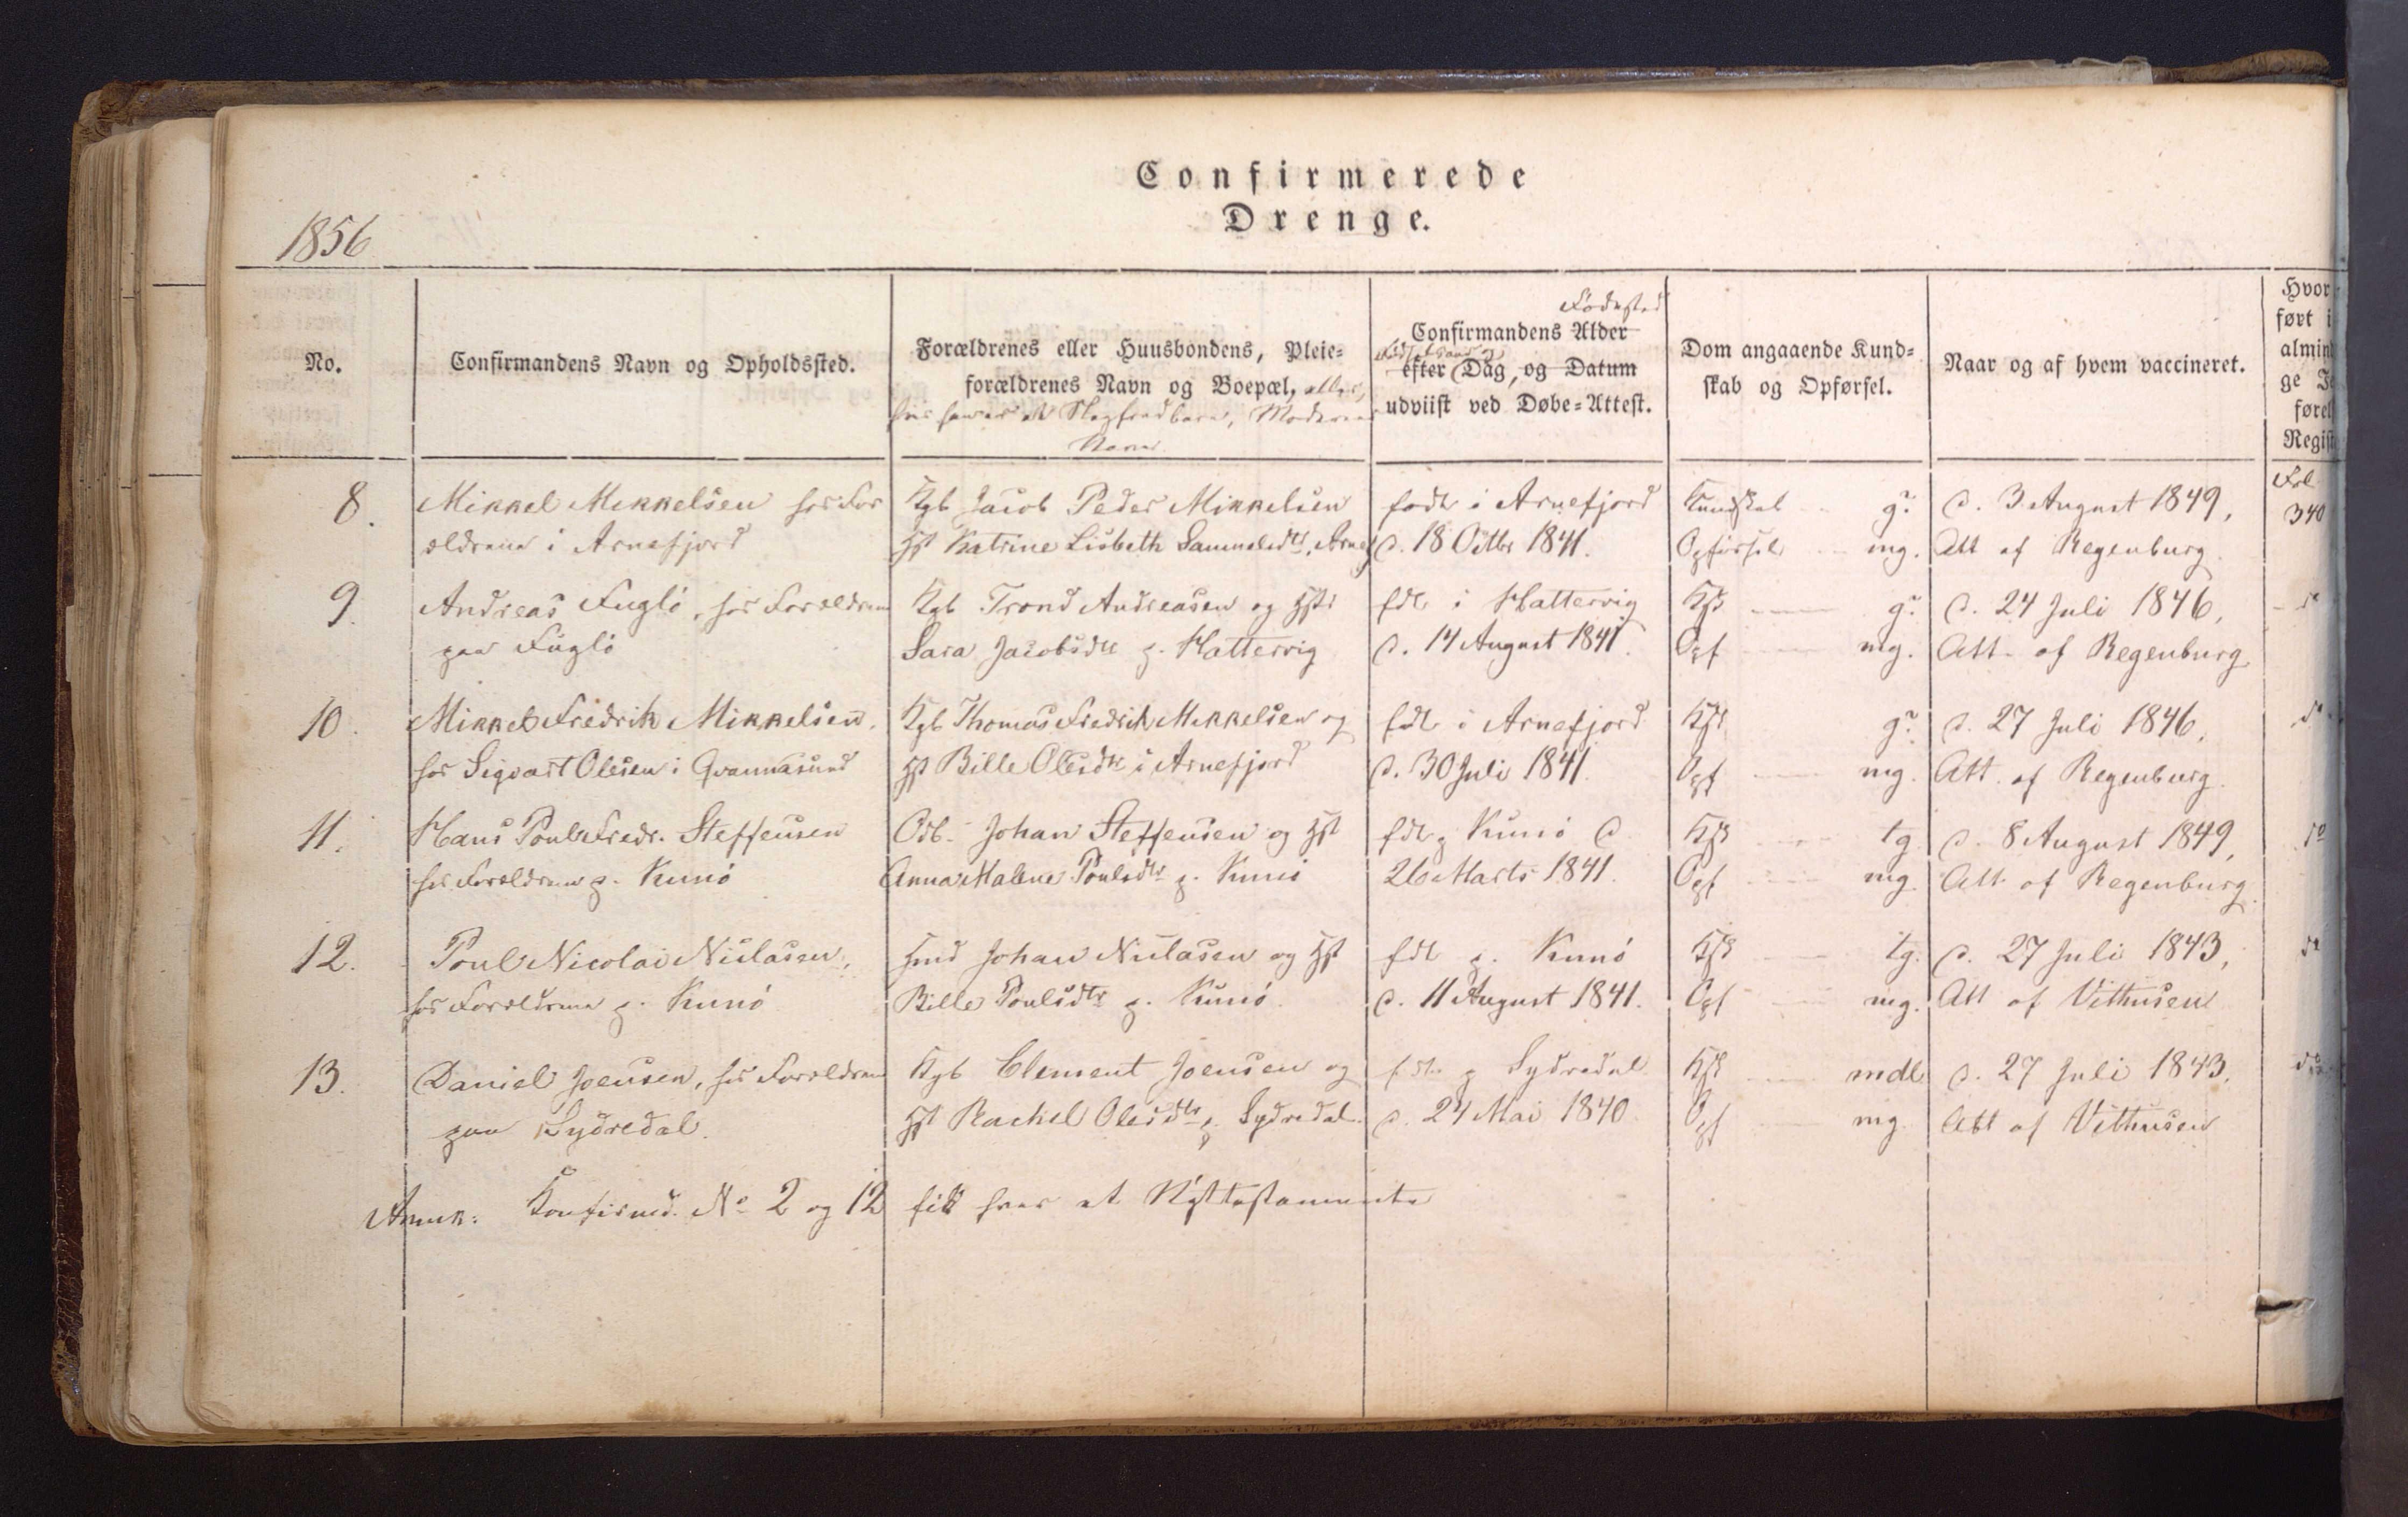 Confirmerede
Drenge.
1856
No.
Confirmandens Navn og Opholdssted.
Forældrenes eller Huusbondens, Pleie=
forældrenes Navn og Boepæl, eller,
hvis han er et Slegfredbarn, Moderens
Navn
Fødested
Confirmandens Alder
efter Dag, og Datum
udviist ved Døbe=Attest.
Dom angaaende Kund=
skab og Opførsel.
Naar og af hvem vaccineret.
Hvor
ført i
almin
ge
føre
Regi
8.
Mikkel Mikkelsen hos For
ældrene i Arnefjord
Kgb Jacob Peder Mikkelsen
Hst Katrine Lisbeth Samuelsdtr, Arnef
født i Arnefjord
d. 18 Octbr 1841.
Kundskab g?
Opførsel mg.
d. 3 August 1849,
Att af Regenburg.
Fol
340
9.
Andreas Fuglö, hos Forældrene
paa Fuglö
Kgb Trond Andreasen og Hst
Sara Jacobsdtr p. Hattervig
fdt i Hattervig
d. 14 August 1841.
Kdsk g?
Opf mg.
d. 24 Juli 1846,
Att. af Regenburg
do
10.
Mikkel Fredrik Mikkelsen,
hos Sigvart Olesen i Qvannasund
Kgb Thomas Fredrik Mikkelsen og
Hst Bille Olesdtr i Arnefjord
fdt i Arnefjord
d. 30 Juli 1841.
Kdsk g?
Opf mg.
d. 27 Juli 1846,
Att. af Regenburg.
do
11.
Hans Poul Fredr. Steffensen
hos Forældrene p. Kunö
Odb. Johan Steffensen og Hst
Anna Malene Poulsdtr p. Kunö
fdt p Kunö d.
26 Marts 1841.
Kdsk tg
Opf mg.
d. 8 August 1849,
Att. af Regenburg.
do
12.
Poul Nicolai Niclasen,
hos Forældrene p. Kunö
Hmd Johan Niclasen og Hst
Bille Poulsdtr p. Kunö.
fdt p. Kunö
d. 11 August 1841.
Kdsk tg.
Opf mg.
d. 27 Juli 1843,
Att af Vithusen
do
13.
Daniel Joensen, hos Forældrene
paa Sydredal.
Kgb Clement Joensen og
Hst Rachel Olesdtr p. Sydredal.
fdt p Sydredal
d. 24 Mai 1840
Kdsk mdl
Opf mg.
d. 27 Juli 1843.
Att af Vithusen
do
Anmk: Konfirmd. No 2 og 12 fik hver et Nyt testamente